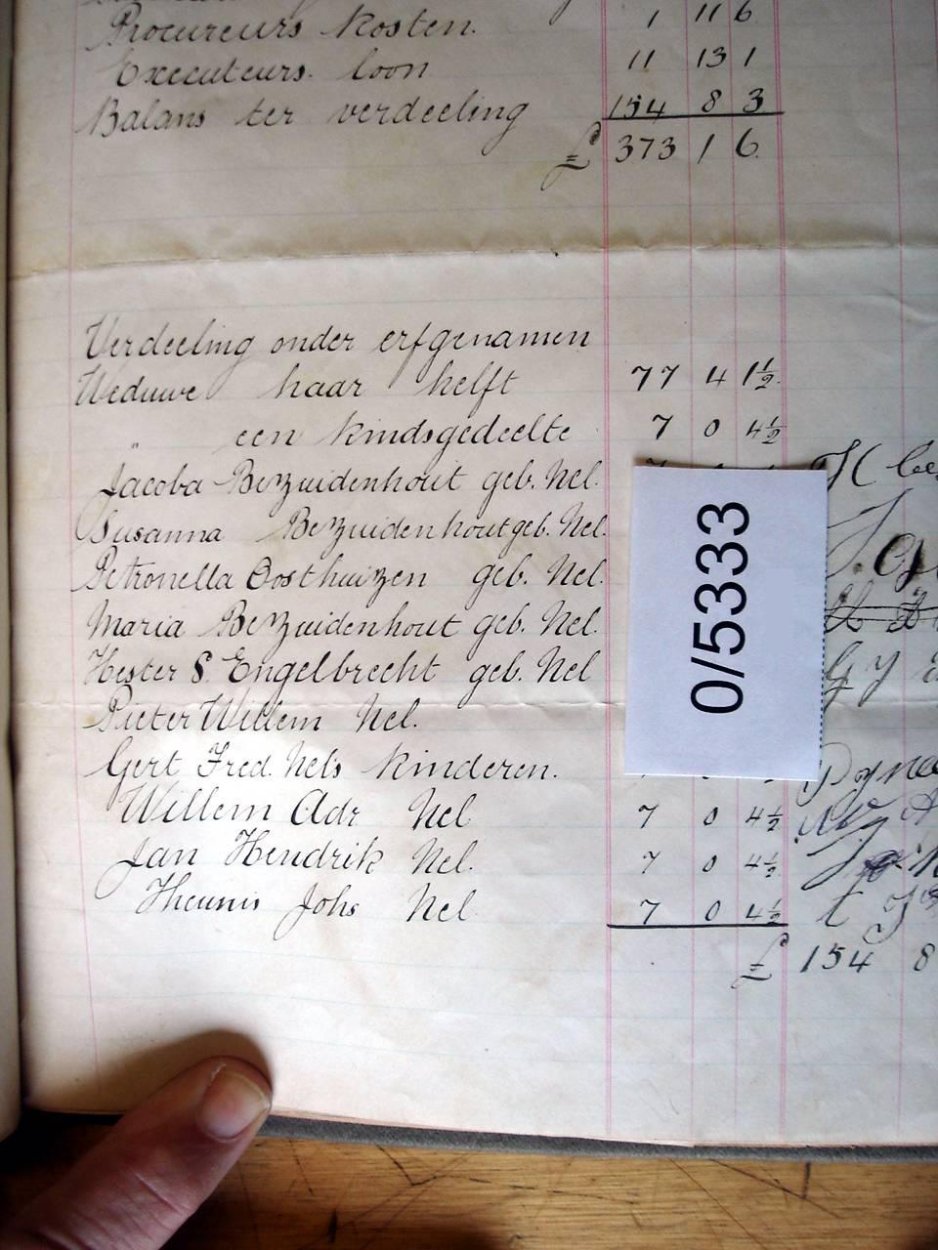 Procureurs kosten. 1 11 6
Executeurs loon 11 13 1
Balans ter verdeeling 154 8 3
£ 373 1 6
Verdeeling onder erfgenamen
Weduwe haar helft 77 4 1½
" een kindsgedeelte 7 0 4½
Jacoba Bezuidenhout geb. Nel.
Susanna Bezuidenhout geb. Nel.
Petronella Oosthuizen geb. Nel.
Maria Bezuidenhout geb. Nel.
Hester S. Engelbrecht geb. Nel
Pieter Willem Nel.
Gert Fred. Nels kinderen.
Willem Adr Nel 7 0 4½
Jan Hendrik Nel. 7 0 4½
Theunis Johs Nel 7 0 4½
£ 154 8
0/5333